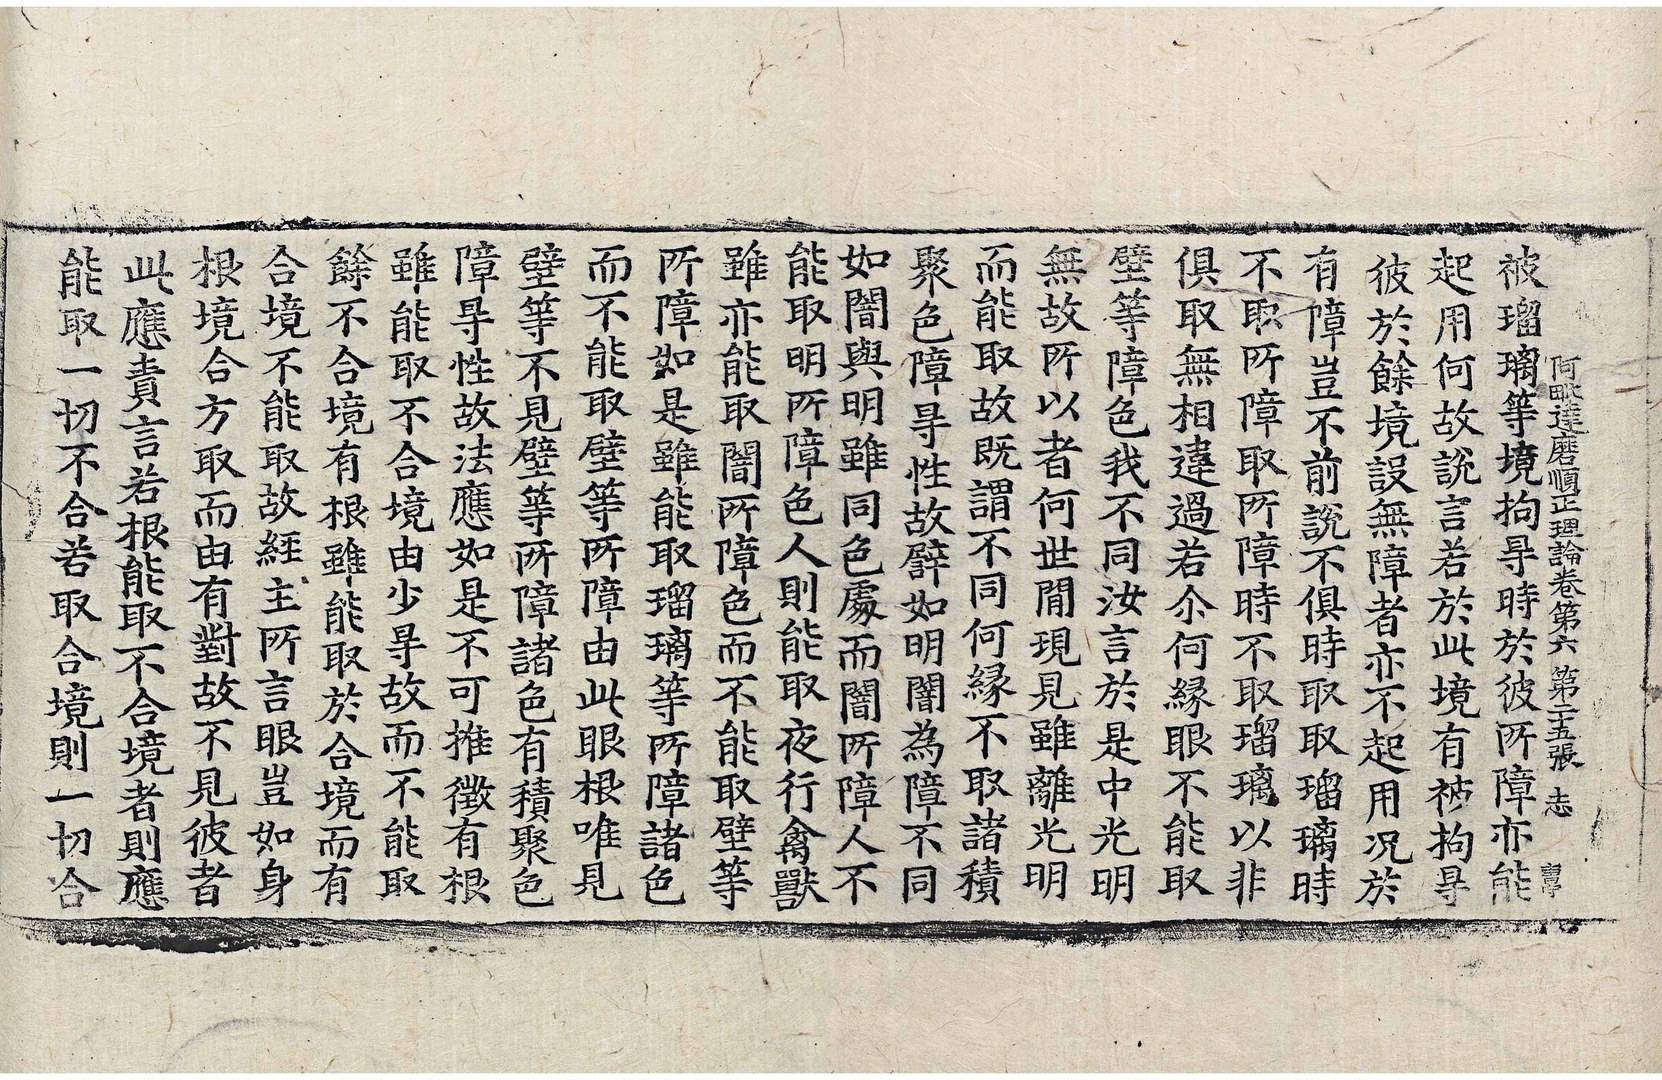 阿毗達磨順正理論卷第六 第二十五張 志
被瑠璃等境拘㝵時於彼所障亦能
起用何故說言若於此境有被拘㝵
彼於餘境設無障者亦不起用况於
有障豈不前說不俱時取取瑠璃時
不取所障取所障時不取瑠璃以非
俱取無相違過若尒何緣眼不能取
壁等障色我不同汝言於是中光明
無故所以者何世閒現見雖離光明
而能取故旣謂不同何緣不取諸積
聚色障㝵性故譬如明闇為障不同
如闇與明雖同色處而闇所障人不
能取明所障色人則能取夜行禽獸
雖亦能取闇所障色而不能取壁等
所障如是雖能取瑠璃等所障諸色
而不能取壁等所障由此眼根唯見
壁等不見壁等所障諸色有積聚色
障㝵性故法應如是不可推徵有根
雖能取不合境由少㝵故而不能取
餘不合境有根雖能取於合境而有
合境不能取故経主所言眼豈如身
根境合方取而由有對故不見彼者
此應責言若根能取不合境者則應
能取一切不合若取合境則一切合